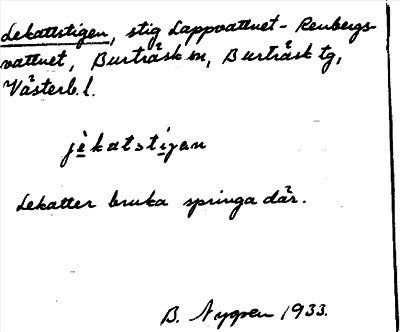 Lekattstigen, stig Lappvattnet - Renbergs-
vattnet, Burträsk sn, Burträsk tg,
Västerb. l.
jèkatstigan
Lekatter bruka springa där.
B. Nygren 1933.